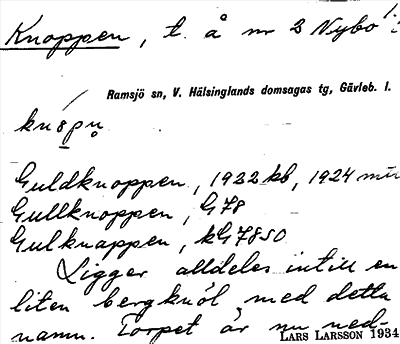 Knoppen, t. å nr 2 Nybo
Ramsjö sn, V. Hälsinglands domsagas tg, Gävleb. l.
Guldknoppen, 1922 kb, 1924 
Gullknoppen, G78
Gulknappen, kG7850
Ligger alldeles intill en
liten bergknöl med detta
namn. Torpet är nu ned-
LARS LARSSON 1934